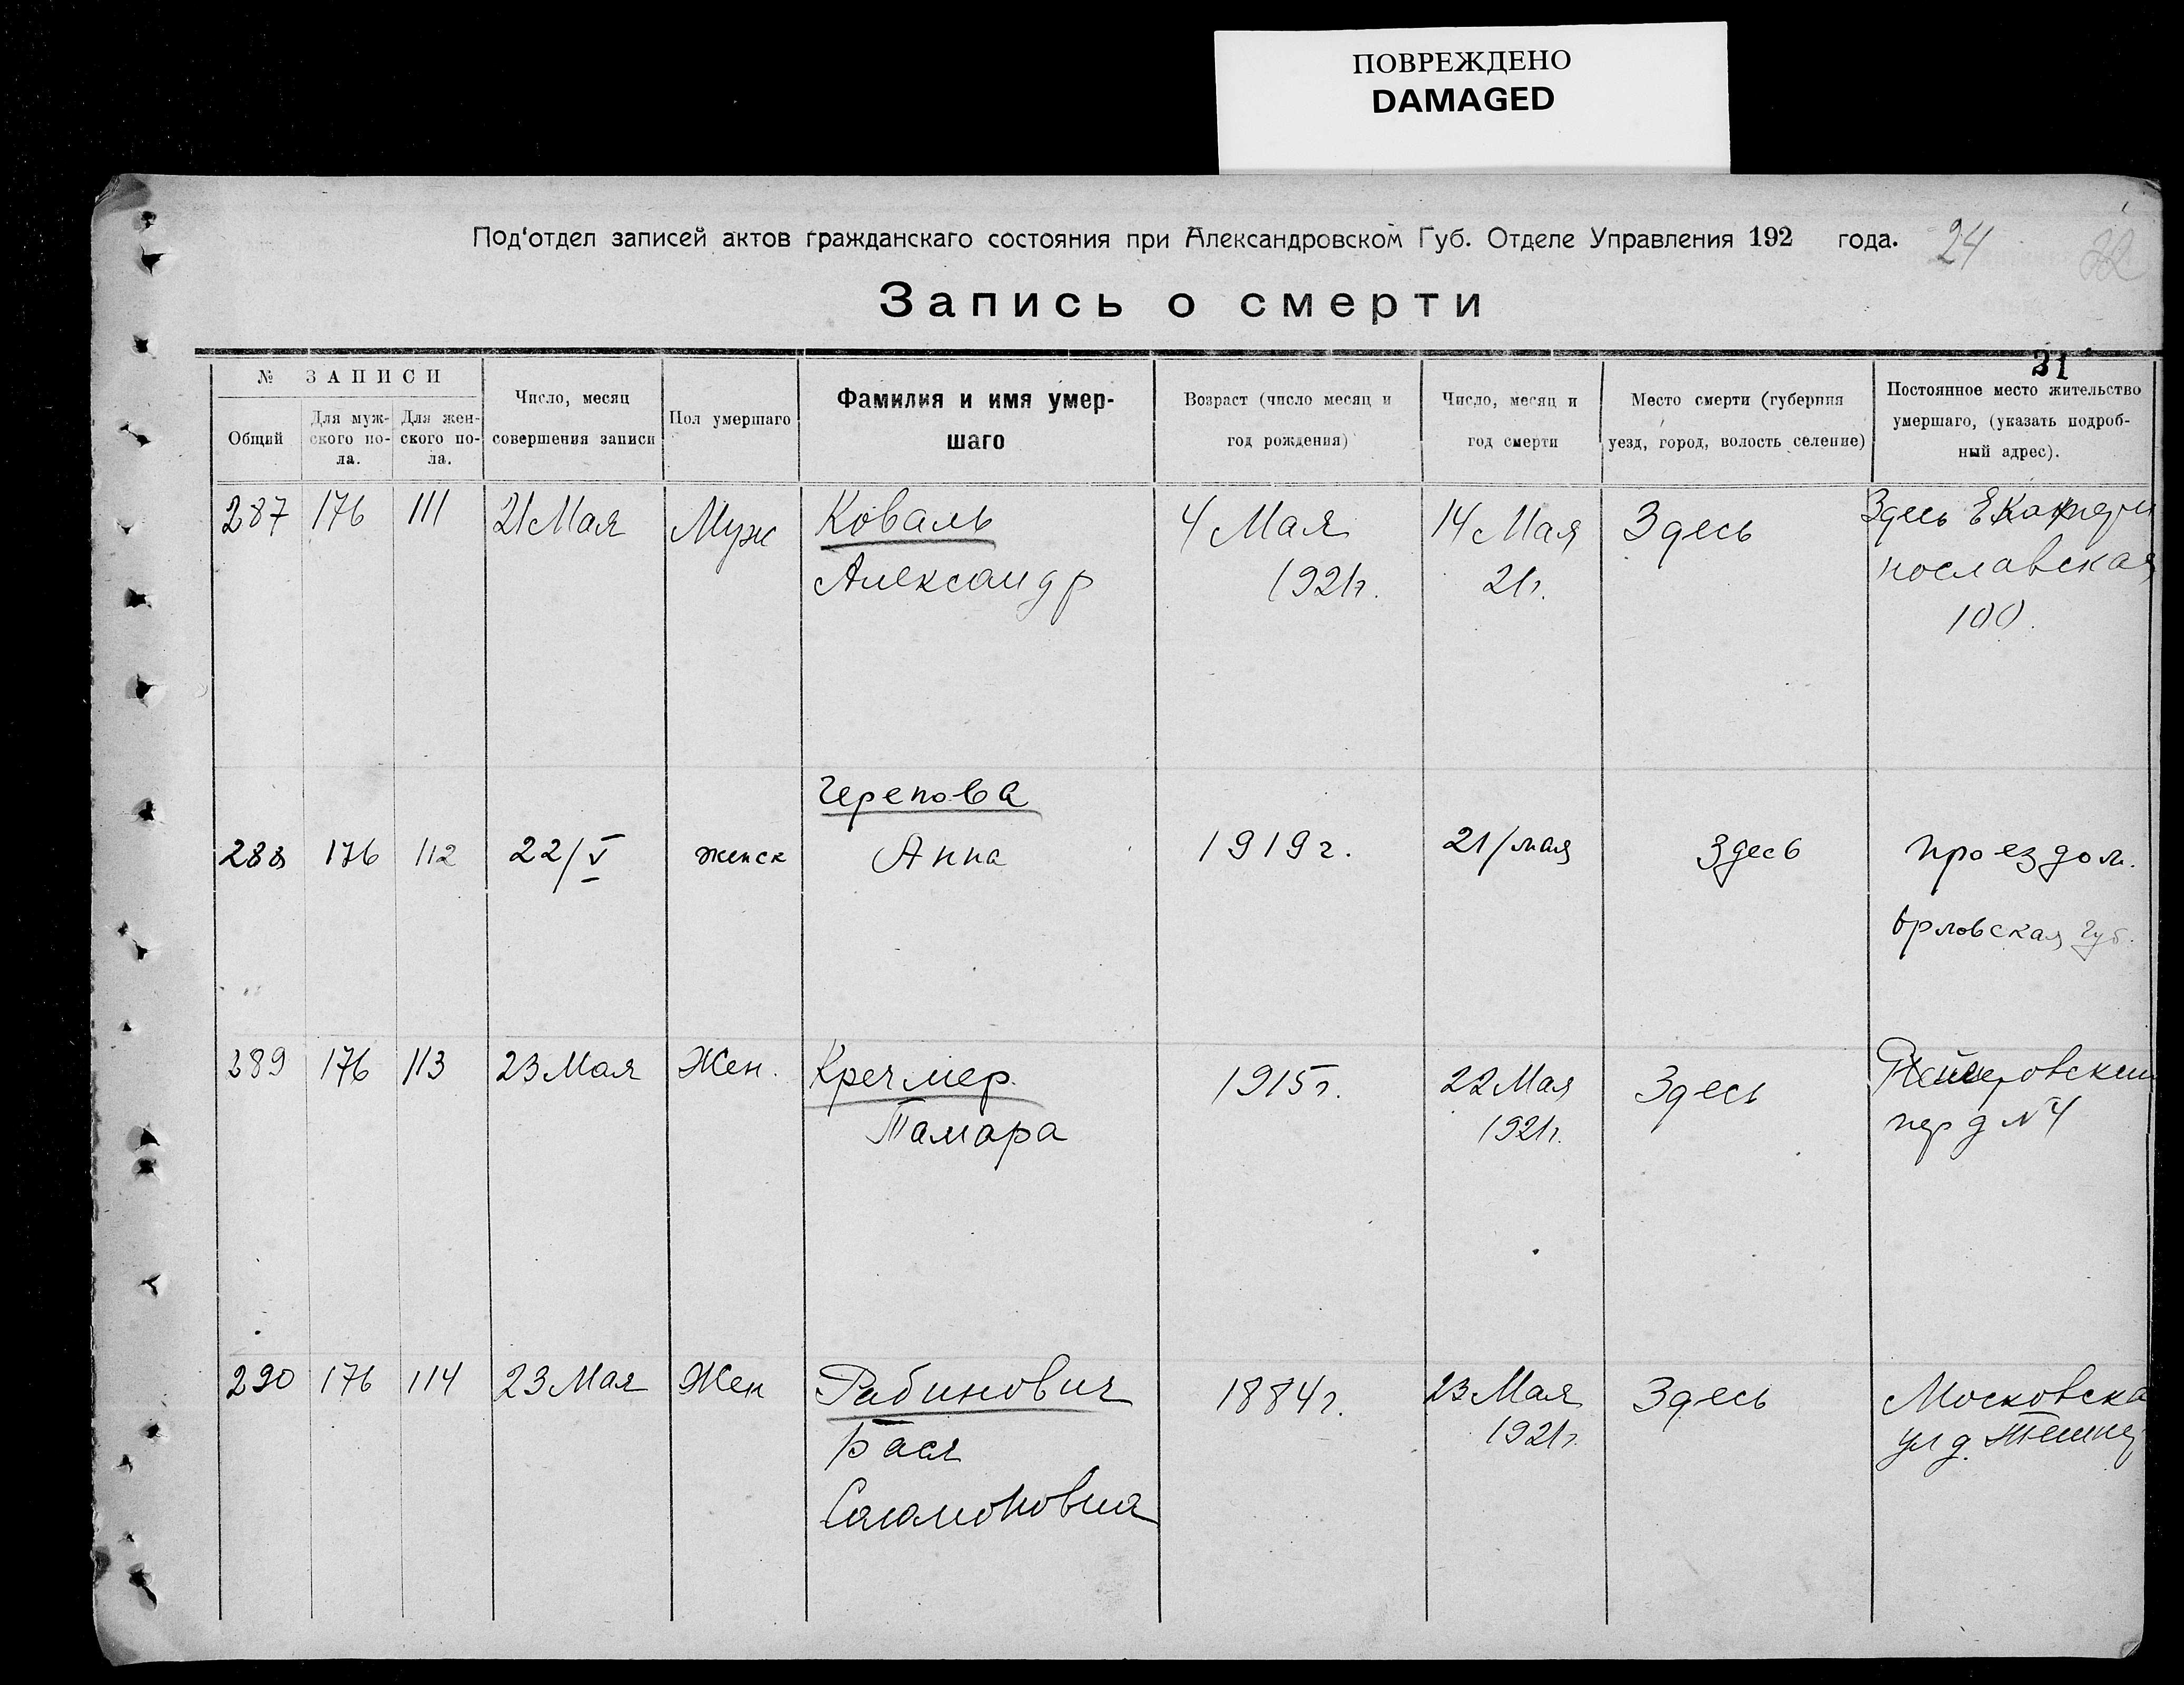 ПОВРЕЖДЕНО
DAMAGED
Под'отдел записей актов гражданскаго состояния при Александровском Губ. Отделе Управления 192 года.
24
22
Запись о смерти
31
№ ЗАПИСИ
Общий
Для муж-
ского по-
ла.
Для жен-
ского по-
ла.
Число, месяц
совершения записи
Пол умершаго
Фамилия и имя умер-
шаго
Возраст (число месяц и
год рождения)
Число, месяц и
год смерти
Место смерти (губерния
уезд, город, волость селение)
Постоянное место жительство
умершаго, (указать подроб-
ный адрес).
287 176 111 21 Мая Муж Коваль 4 Мая 14 Мая Здесь Здесь Екатери
Александр 1921г. 21г. нославская
100.
Черепова
288 176 112 22/V женск Анна 1919г. 21/мая Здесь проездом.
Орловская губ.
289 176 113 23 Мая Жен. Кречмер 1915г. 22 Мая Здесь
Тамара 1921г. пер д N 4
290 176 114 23 Мая Жен Рабинович 1884г. 23 Мая Здесь Московска
Бася 1921г. ул д.
Саламоновна